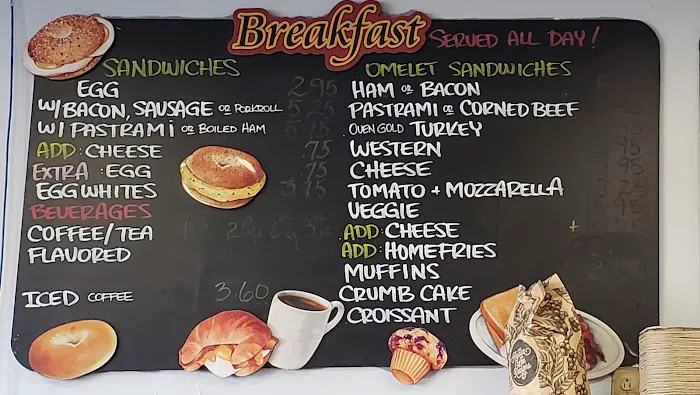 Breakfast SERVED ALL DAY!
SANDWICHES
EGG 2.95
W/BACON, SAUSAGE OR PORKROLL 5.25
W/ PASTRAMI OR BOILED HAM 5.75
ADD: CHEESE .75
EXTRA: EGG .75
EGG WHITES 3.75
BEVERAGES
COFFEE/TEA
FLAVORED
ICED COFFEE 3.60
OMELET SANDWICHES
HAM OR BACON
PASTRAMI OR CORNED BEEF
OVEN GOLD TURKEY
WESTERN
CHEESE
TOMATO + MOZZARELLA
VEGGIE
ADD: CHEESE +
ADD: HOMEFRIES
MUFFINS
CRUMB CAKE
CROISSANT